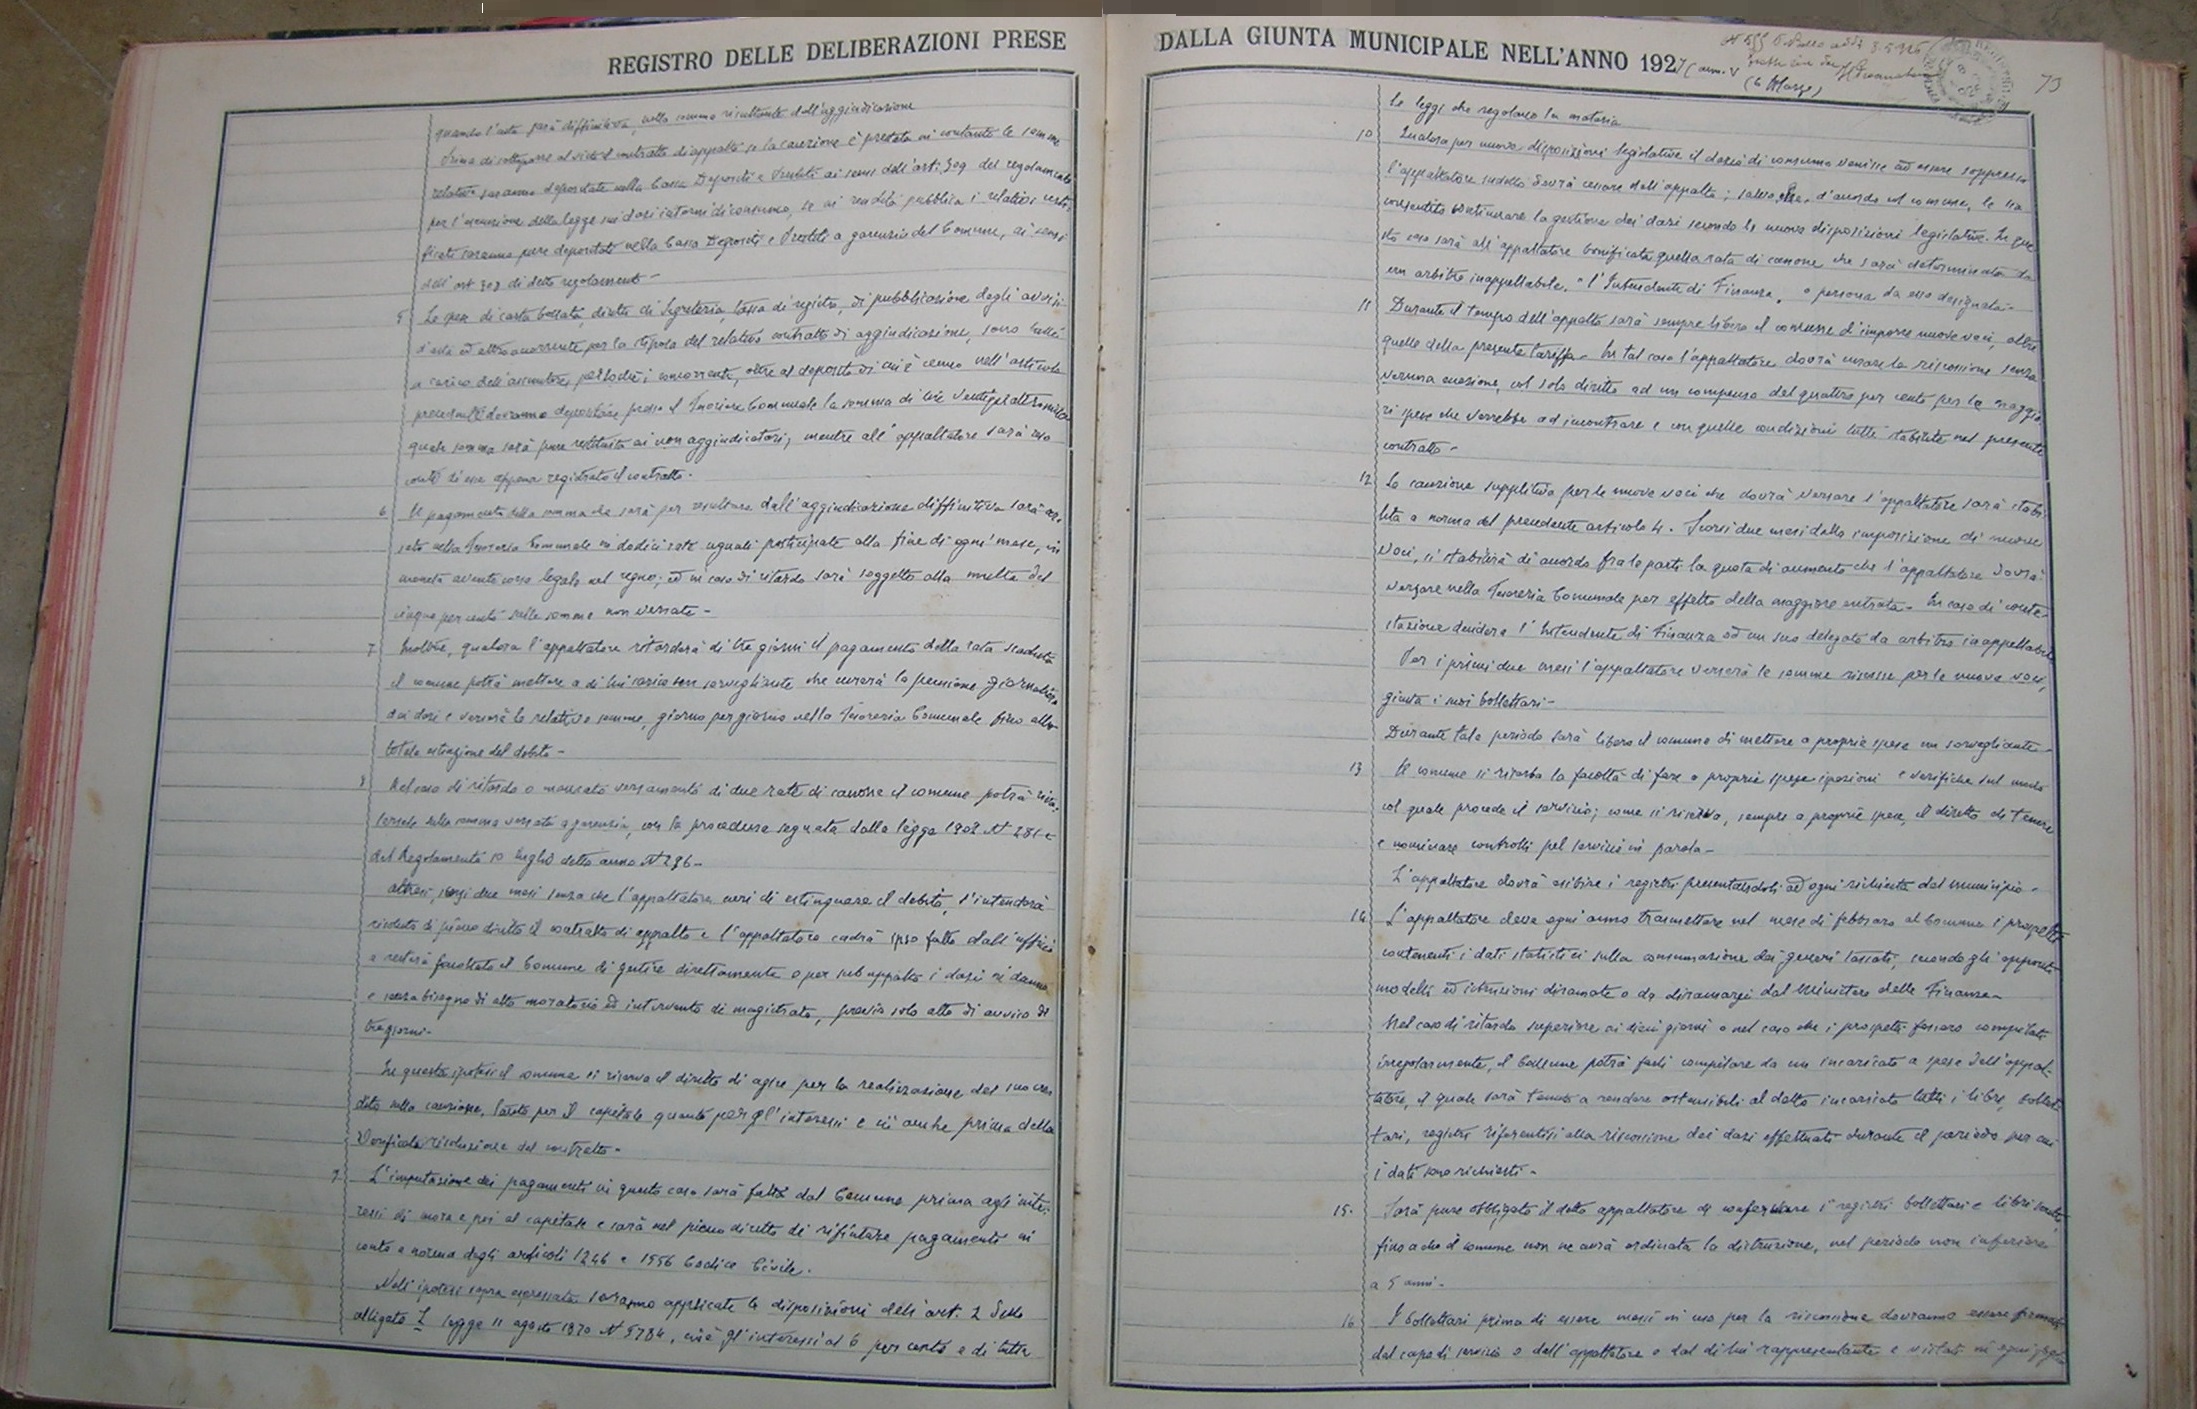 REGISTRO DELLE DELIBERAZIONI PRESE
quando l'asta sarà diffinitiva, nella somma risultante dall'aggiudicazione
Prima di sottoporre al visto il contratto di appalto se la cauzione è prestata in contante le somme
relative saranno depositate nella Cassa Depositi e Prestiti ai sensi dell'art. 309 del regolamento
per l'esecuzione della legge sui dazi interni di consumo, se in rendita pubblica i relativi certi,
ficati saranno pure depositati nella Cassa Depositi e Prestiti a garenzia del Comune, ai sensi
dell'art 309 di detto regolamento -
5 Le spese di carta bollata, diritti di Segreteria, tassa di registro, di pubblicazione degli avvisi
d'asta ed altro occorrente per la stipola del relativo contratto di aggiudicazione, sono tutte
a carico dell'assuntore, perlochè i concorrenti, oltre al deposito di cui è cenno nell'articolo
precedente dovranno depositare presso il Tesoriere Comunale la somma di lire ventiquattromila
quale somma sarà pure restituita ai non aggiudicatari, mentre all'appaltatore sarà reso
conto di essa appena registrato il contratto.
6 Il pagamento della somma che sarà per risultare dall'aggiudicazione diffinitiva sarà ver,
sato nella Tesoreria Comunale in dodici rate uguali posticipate alla fine di ogni mese, in
moneta avente corso legale nel regno; ed in caso di ritardo sarà soggetto alla multa del
cinque per cento sulle somme non versate -
7 Inoltre, qualora l'appaltatore ritarderà di tre giorni il pagamento della rata scaduta
il comune potrà mettere a di lui carico un sorvegliante che curerà la percezione giornaliera
dei dazi e verserà le relative somme, giorno per giorno nella Tesoreria Comunale fino alla
totale estinzione del debito -
8 Nel caso di ritardo o mancato versamento di due rate di canone il comune potrà riva,
lersele sulla somma versata a garenzia, con la procedura segnata dalla legge 1902 N 281 e
del Regolamento 10 luglio detto anno N 296 -
altresì, scorsi due mesi senza che l'appaltatore curi di estinguere il debito, s'intenderà
risoluto di pieno diritto il contratto di appalto e l'appaltatore cadrà ipso facto dall'ufficio
e resterà facoltato il Comune di gestire direttamente o per sub appalto i dazi in danno
e senza bisogno di atto moratorio ed intervento di magistrato, previo solo atto di avviso di
tre giorni -
In questa ipotesi il comune si riserva il diritto di agire per la realizzazione del suo cre
dito sulla cauzione, tanto per il capitale quanto per gl'interessi e ciò anche prima della
verificata risoluzione del contratto -
9 L'imputazione dei pagamenti in questo caso sarà fatta dal Comune prima agli inte,
ressi di mora e poi al capitale e sarà nel pieno diritto di rifiutare pagamento in
conto a norma degli articoli 1246 e 1556 Codice Civile.
Nell'ipotesi sopra espressata saranno applicate le disposizioni dell'art. 2 della
allegato L legge 11 agosto 1870 N 5784, cioè gl'interessi al 6 per cento e di tutte
DALLA GIUNTA MUNICIPALE NELL'ANNO 1927 (ann. V
(6 Marzo)
73
le leggi che regolano la materia
10 Qualora per nuove disposizioni legislative il dazio di consumo venisse ad essere soppresso
l'appaltatore suddetto dovrà cessare dall'appalto; salvo che, d'accordo col comune, le sia
consentito continuare la gestione dei dazi secondo le nuove disposizioni legislative. In que
sto caso sarà all'appaltatore bonificata quella rata di canone che sarà determinata da
un arbitro inappellabile, "l'Intendente di Finanza, o persona da esso designata -
11 Durante il tempo dell'appalto sarà sempre libero il comune d'imporre nuove voci oltre
quelle della presente tariffa - In tal caso l'appaltatore dovrà curare la riscossione senza
veruna eccezione, col solo diritto ad un compenso del quattro per cento per le maggio
ri spese che verrebbe ad incontrare e con quelle condizioni tutte stabilite nel presente
contratto -
12 La cauzione suppletiva per le nuove voci che dovrà versare l'appaltatore sarà stabi
lita a norma del precedente articolo 4. Scorsi due mesi dalla imposizione di nuove
voci, si stabilirà di accordo fra le parti la quota di aumento che l'appaltatore dovrà
versare nella Tesoreria Comunale per effetto della maggiore entrata - In caso di conte-
stazione deciderà l'Intendente di Finanza od un suo delegato da arbitro inappellabile
Per i primi due mesi l'appaltatore verserà le somme riscosse per le nuove voci,
giusta i suoi bollettari -
Durante tale periodo sarà libero il comune di mettere a proprie spese un sorvegliante -
13 Il comune si riserba la facoltà di fare a proprie spese ispezioni e verifiche sul modo
col quale procede il servizio; come si riserva, sempre a proprie spese, il diritto di tenere
e nominare controlli pel servizio in parola -
L'appaltatore dovrà esibire i registri presentandoli ad ogni richiesta del municipio -
14 L'appaltatore deve ogni anno trasmettere nel mese di febbraro al Comune i prospetti
contenenti i dati statistici sulla consumazione dei generi tassati, secondo gli appositi
modelli ed istruzioni diramate o da diramarsi dal Ministero delle Finanze -
Nel caso di ritardo superiore ai dieci giorni o nel caso che i prospetti fossero compilati
irregolarmente, il Comune potrà farli compilare da un incaricato a spese dell'appal-
tatore, il quale sarà tenuto a rendere ostensibili al detto incaricato tutti i libri, bollet
tari, registri riferentisi alla riscossione dei dazi effettuati durante il periodo per cui
i dati sono richiesti -
15. Sarà pure obbligato il detto appaltatore di conservare i registri bollettari e libri
fino a che il comune non ne avrà ordinata la distruzione, nel periodo non inferiore
a 5 anni -
16 I bollettari prima di essere messi in uso per la riscossione dovranno essere firmati
dal capo di servizio o dall'appaltatore o dal di lui rappresentante e vistati in ogni foglio